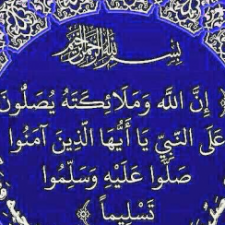 بسم الله الرحمن الرحيم
﴿ إِنَّ اللَّهَ وَمَلَائِكَتَهُ يُصَلُّونَ
عَلَى النَّبِيِّ يَا أَيُّهَا الَّذِينَ آمَنُوا
صَلُّوا عَلَيْهِ وَسَلِّمُوا
تَسْلِيماً ﴾